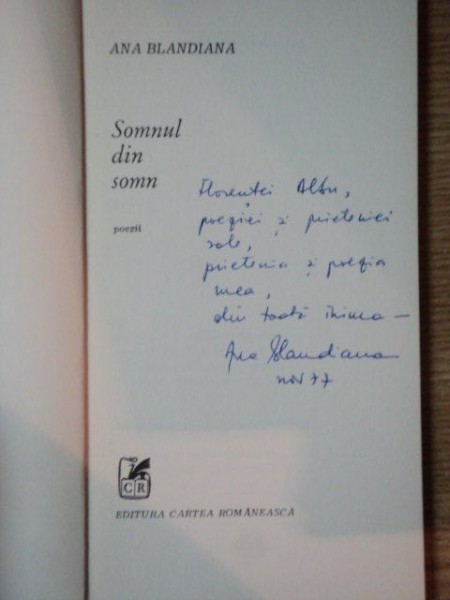 ANA BLANDIANA
Somnul
din
somn
poezii
Florenței Albu,
poeziei și prieteniei
sale,
prietenia și poezia
mea,
din toată inima —
Ana Blandiana
nov 77
CR
EDITURA CARTEA ROMÂNEASCĂ